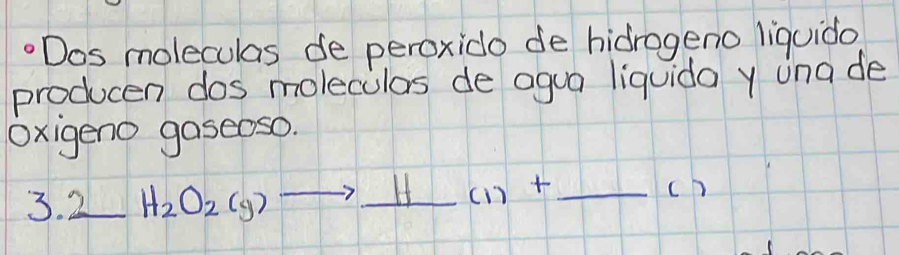 •Dos moleculas de peroxido de hidrogeno liquido
producen dos moleculas de agua liquida y una de
oxigeno gaseoso.
3. 2 H₂O₂ (g) → H (l) + ___ ( )